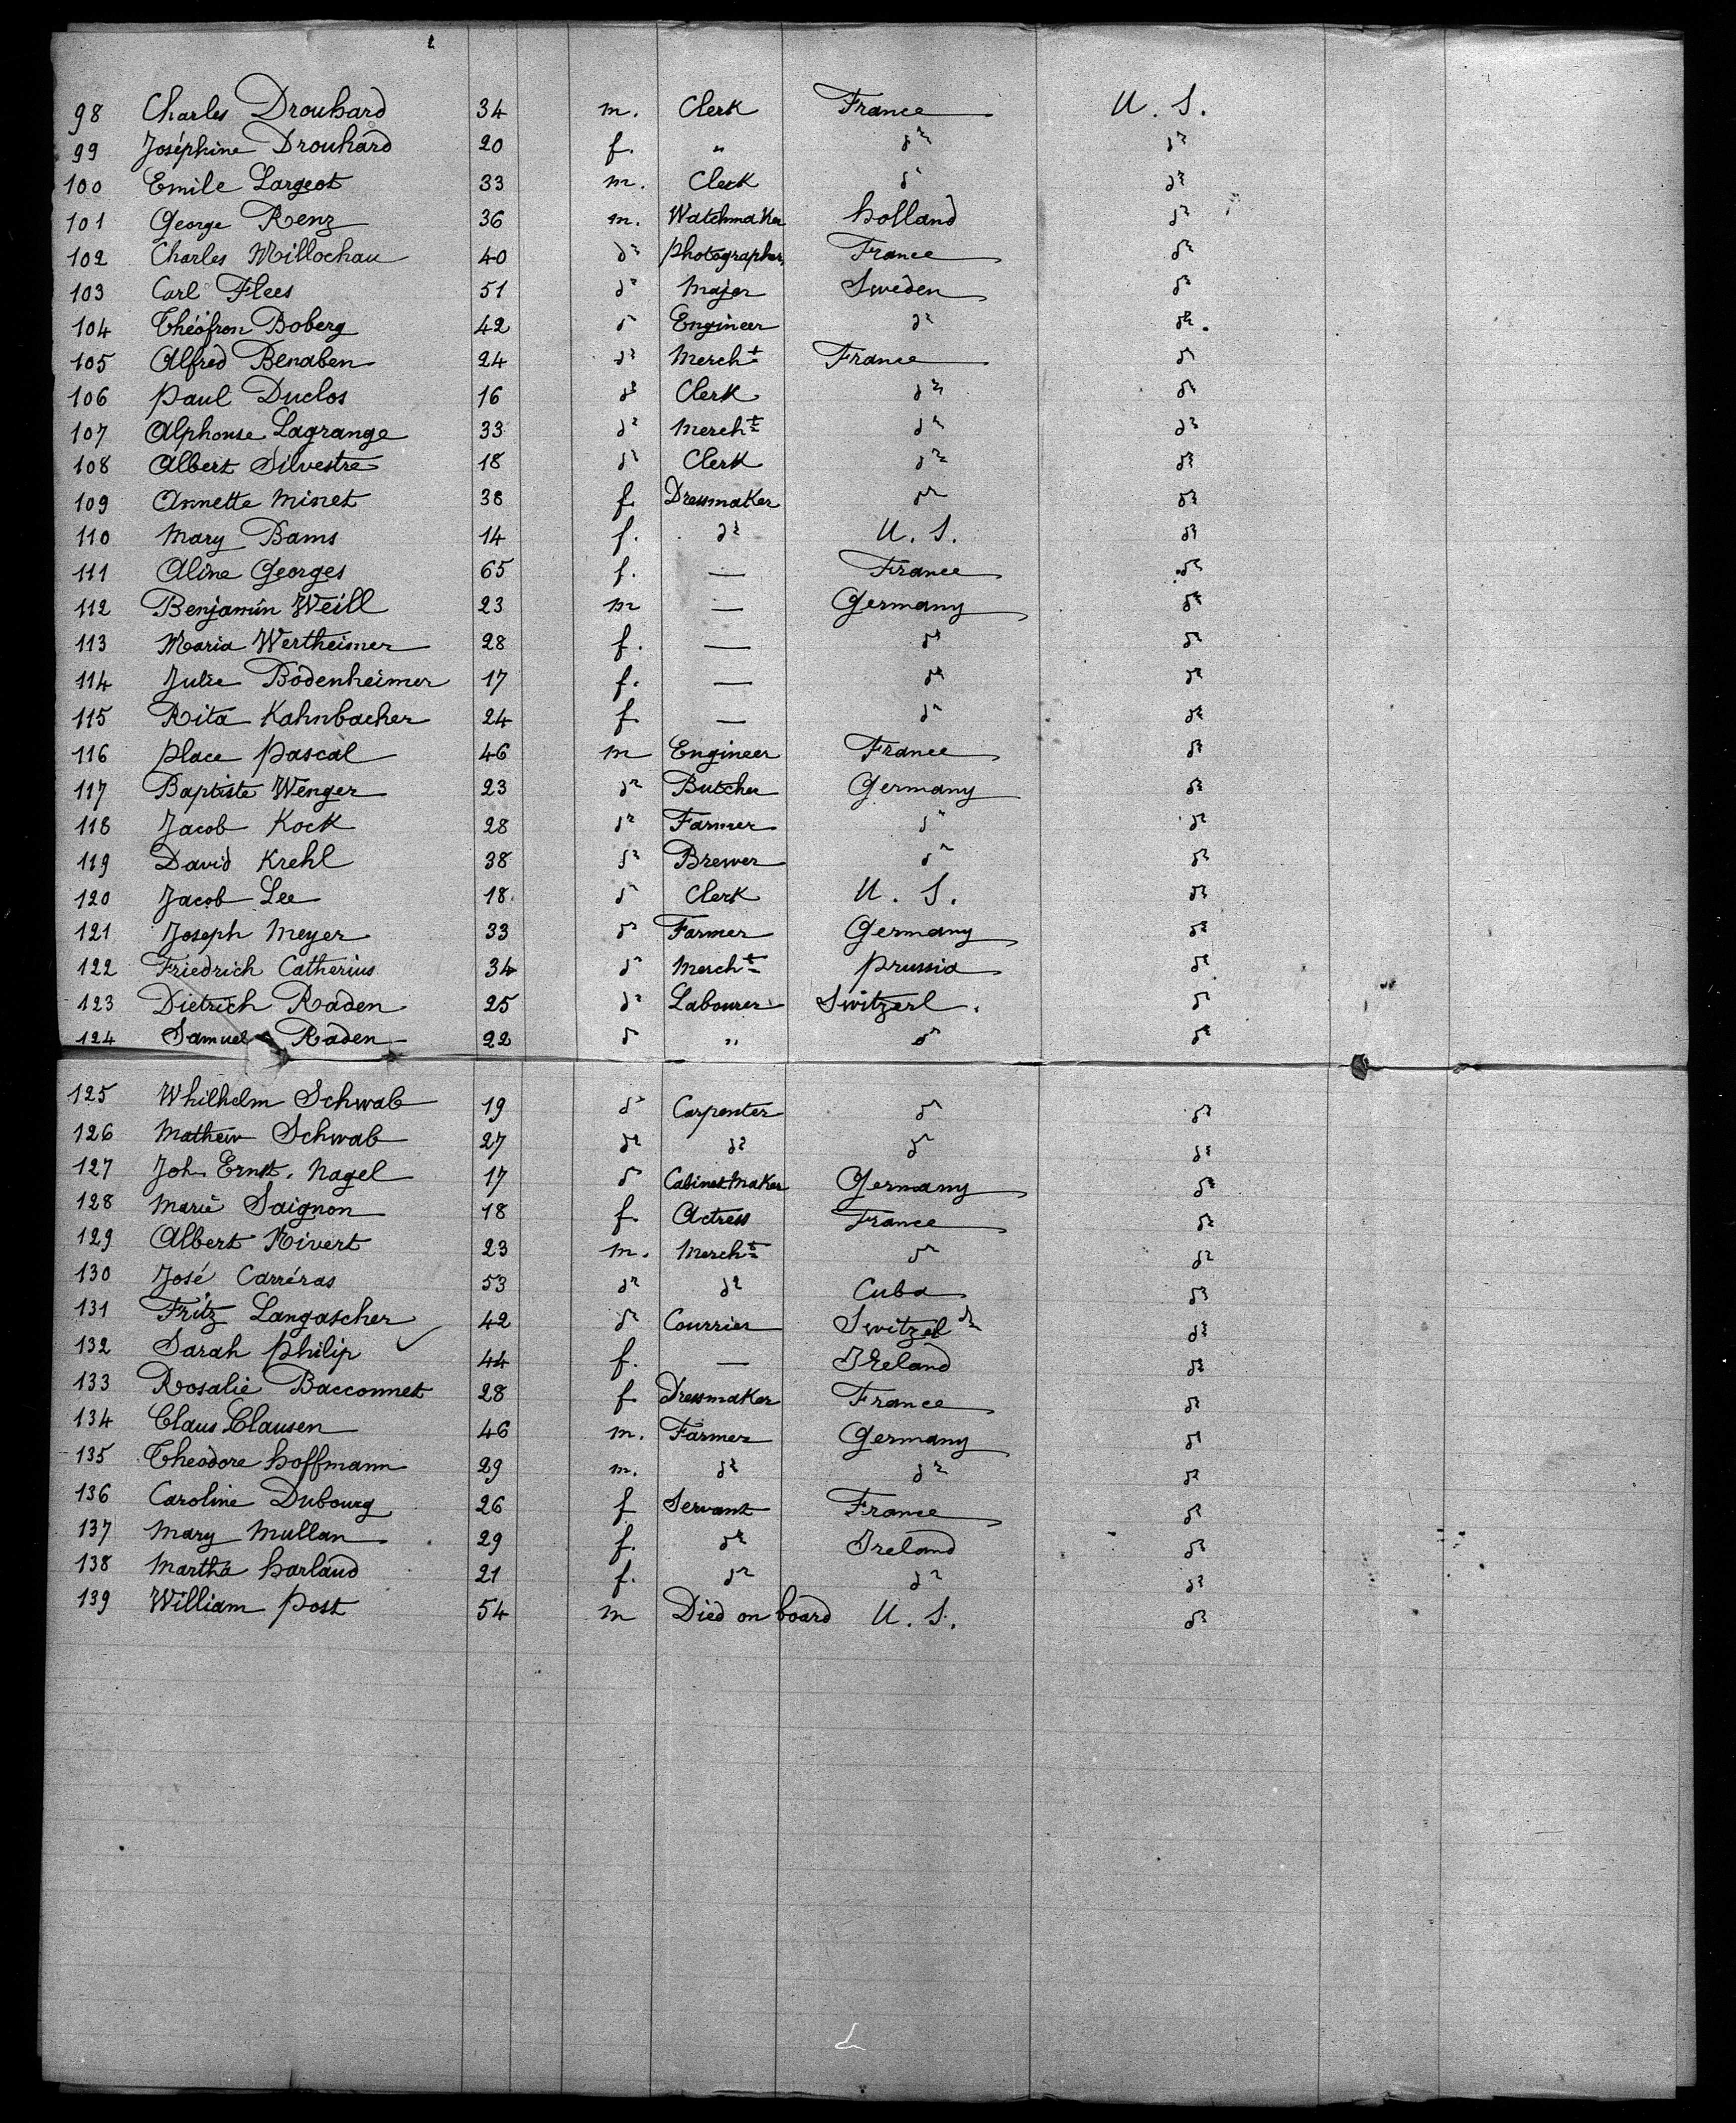 98 Charles Drouhard 34 m. Clerk France U. S.
99 Joséphine Drouhard 20 f. " do do
100 Emile Largeot 33 m. Clerk do do
101 George Renz 36 m. Watchmaker holland do
102 Charles Millochau 40 do Photographer France do
103 Carl Flees 51 do Major Sweden do
104 Théofron Boberg 42 do Engineer do do.
105 Alfred Benaben 24 do Mercht France do
106 Paul Duclos 16 do Clerk do do
107 Alphonse Lagrange 33 do Mercht do do
108 Albert Silvestre 18 do Clerk do do
109 Annette Minet 38 f. Dressmaker do do
110 Mary Bams 14 f. do U. S. do
111 Aline Georges 65 f. — France do
112 Benjamin Weill 23 m — Germany do
113 Maria Wertheimer 28 f. — do do
114 Julie Bodenheimer 17 f. — do do
115 Rita Kahnbacher 24 f. — do do
116 Place Pascal 46 m Engineer France do
117 Baptiste Wenger 23 do Butcher Germany do
118 Jacob Kock 28 do Farmer do do
119 David Krehl 38 do Brewer do do
120 Jacob Lee 18 do Clerk U. S. do
121 Joseph Meyer 33 do Farmer Germany do
122 Friedrich Catherius 34 do Mercht Prussia do
123 Dietrich Raden 25 do Labourer Switzerl. do
124 Samuel Raden 22 do " do do
125 Whilhelm Schwab 19 do Carpenter do do
126 Mathew Schwab 27 do do do do
127 Joh. Ernst. Nagel 17 do Cabinet Maker Germany do
128 Marie Saignon 18 f. Actress France do
129 Albert Rivert 23 m. Mercht do do
130 José Carréras 53 do do Cuba do
131 Fritz Langascher 42 do Courrier Switzel do
132 Sarah Philip 44 f. — IReland do
133 Rosalie Bacconnet 28 f Dressmaker France do
134 Claus Clausen 46 m. Farmer Germany do
135 Theodore hoffmann 29 m. do do do
136 Caroline Dubourg 26 f Servant France do
137 Mary Mullan 29 f. do Ireland do
138 Martha harland 21 f. do do do
139 William Post 54 m Died on board U. S. do